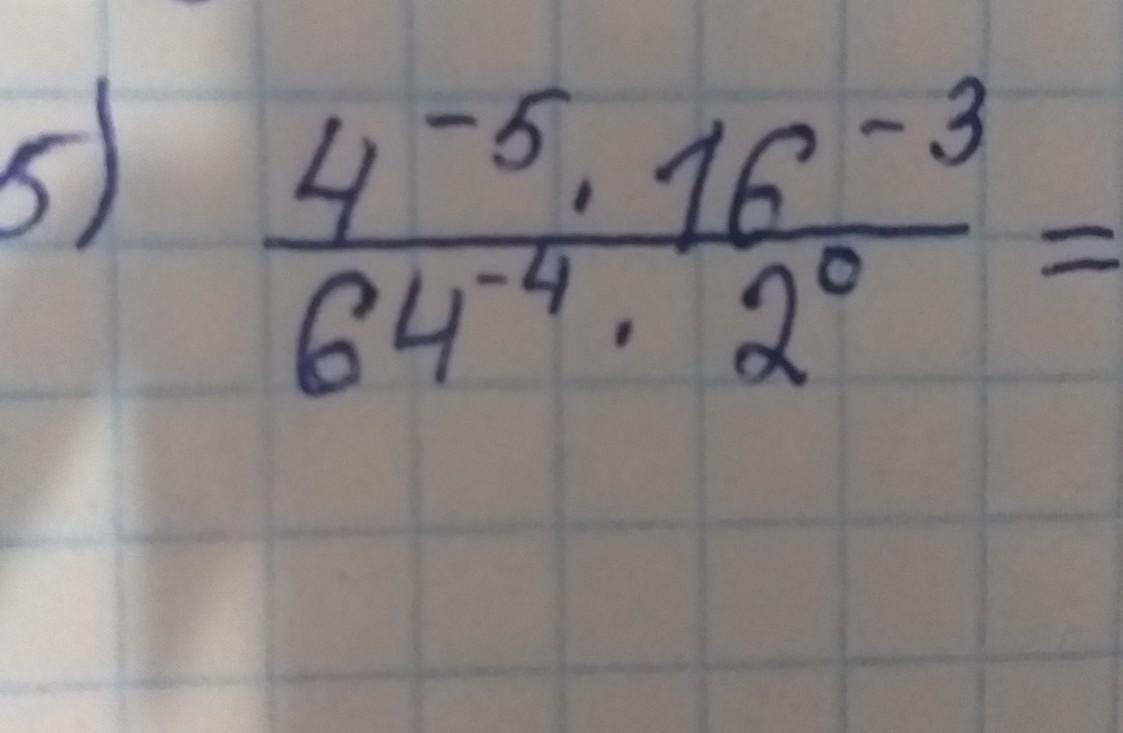 5) \frac{4^{-5} \cdot 16^{-3}}{64^{-4} \cdot 2^{0}} =